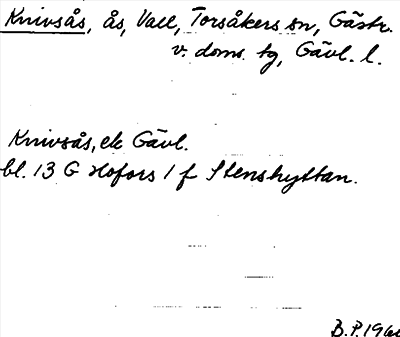 Knivsås, ås, Vall, Torsåkers sn, Gästr.
v. doms. tg, Gävl. l.
Knivsås, ek Gävl.
bl. 13 G Hofors 1 f Stenshyttan.
B.P. 196